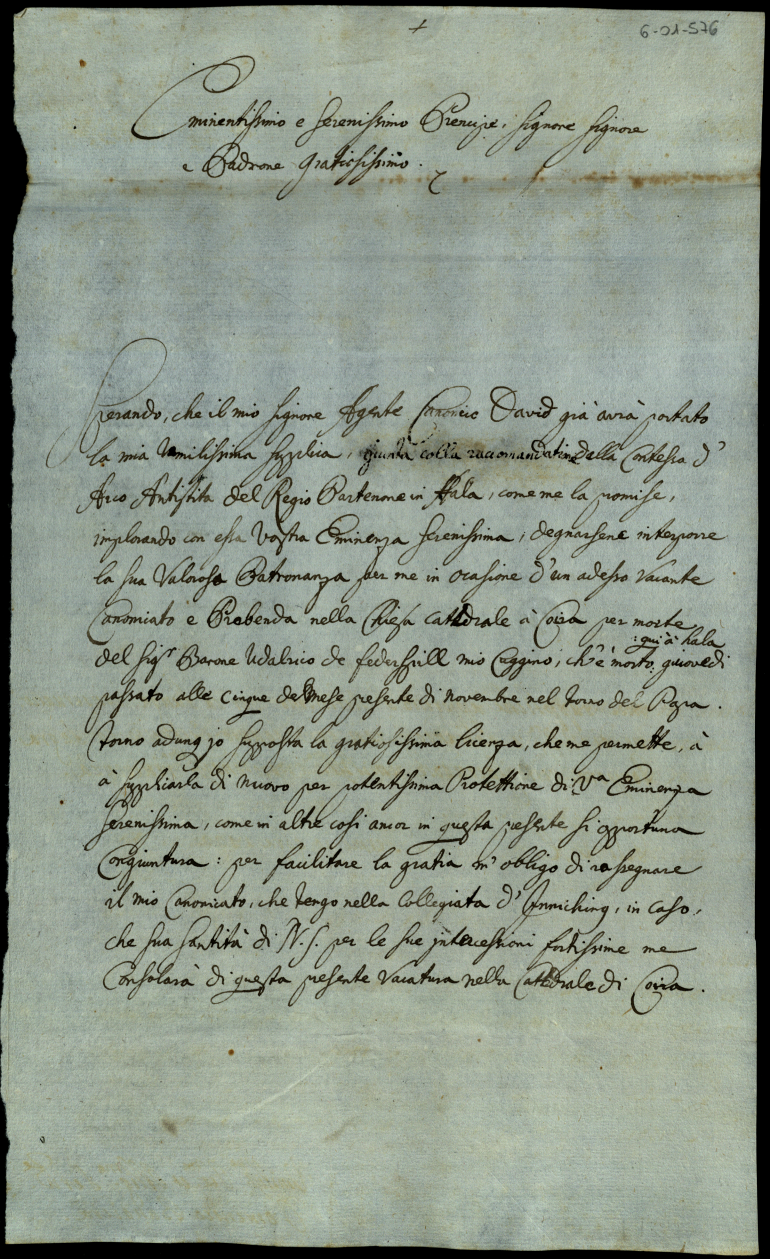 +
6-01-576
Eminentissimo e Serenissimo Prencipe, Signore Signore
e Padrone Gratiosissimo.
Sperando, che il mio Signore Agente Canonico David già avrà portato
la mia Umilissima Supplica, giunta colla raccomandatione della Contessa d'
Arco Antistita del Regio Partenone in Hala, come me la promise,
implorando con essa Vostra Eminenza Serenissima, degnarsene interporre
la sua Valorosa Patronanza per me in ocasione d'un adesso vacante
Canonicato e Prebenda nella Chiesa Cattedrale à Coira per morte
: qui à hala
del Sigr Barone Udalrico de Federspill mio Cuggino, ch'è morto giovedi
passato alle cinque del Mese presente di Novembre nel torno del Papa.
Torno adunq jo supposta la gratiosissima licenza, che me permette, à
à Suppliarla di nuovo per potentissima Protettione di Va Eminenza
Serenissima, come in altre cosi ancor in questa presente si opportuna
Congiuntura: per facilitare la gratia m'obligo di rassegnare
il mio Canonicato, che tengo nella Collegiata d'Inniching, in caso,
che sua Santità di N. S. per le sue intercessioni fortissime me
Consolarà di questa presente vacatura nella Cattedrale di Coira.